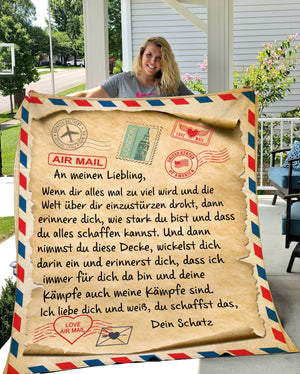 AIR MAIL
LOVE
UNITED STATES
An meinen Liebling,
Wenn dir alles mal zu viel wird und die
Welt über dir einzustürzen droht, dann
erinnere dich, wie stark du bist und dass
du alles schaffen kannst. Und dann
nimmst du diese Decke, wickelst dich
darin ein und erinnerst dich, dass ich
immer für dich da bin und deine
Kämpfe auch meine Kämpfe sind.
Ich liebe dich und weiß, du schaffst das,
Dein Schatz
LOVE
AIR MAIL